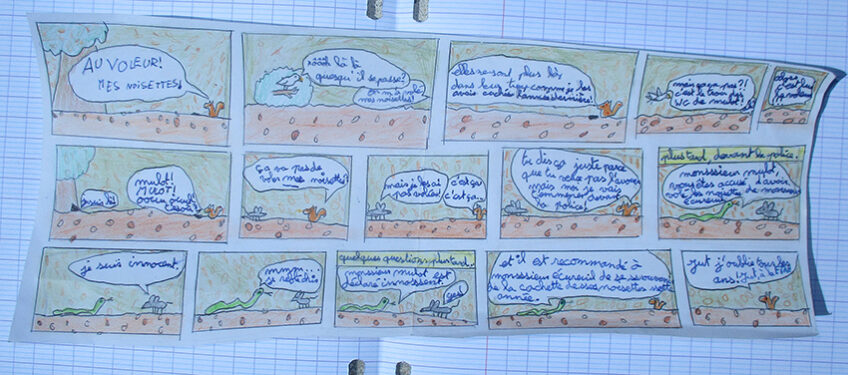 AU VOLEUR!
MES NOISETTES!
rôôôh là là
quesqu'il se passe?
on m'a volé
mes noisettes!
elles ne sont plus là,
dans leur trou comme je les
avais cachés l'année dernière!
mais ça va pas?!
c'est le trou des
WC de mulot!
alors
c'est lui
mulot!
MULOT!
je suis là!
ça va pas de
voler mes noisettes!
mais je les ai
pas volées!
c'est ça
c'est ça...
tu dis ça juste parce
que tu veux pas l'avouer
mais moi je vais
devant
la police!
plus tard, devant la police.
monssieur mulot,
vous êtes accusé d'avoir
volé les noisettes de monssieur
écureuil
je suis innocent.
mmm...
je réfléchis
quelques questions plus tard...
monssieur mulot est
déclaré innossent.
et il est recommandé à
monssieur écureuil de se souvenir
de la cachette de ses noisettes
année.
zut j'oublie tous les
ans.